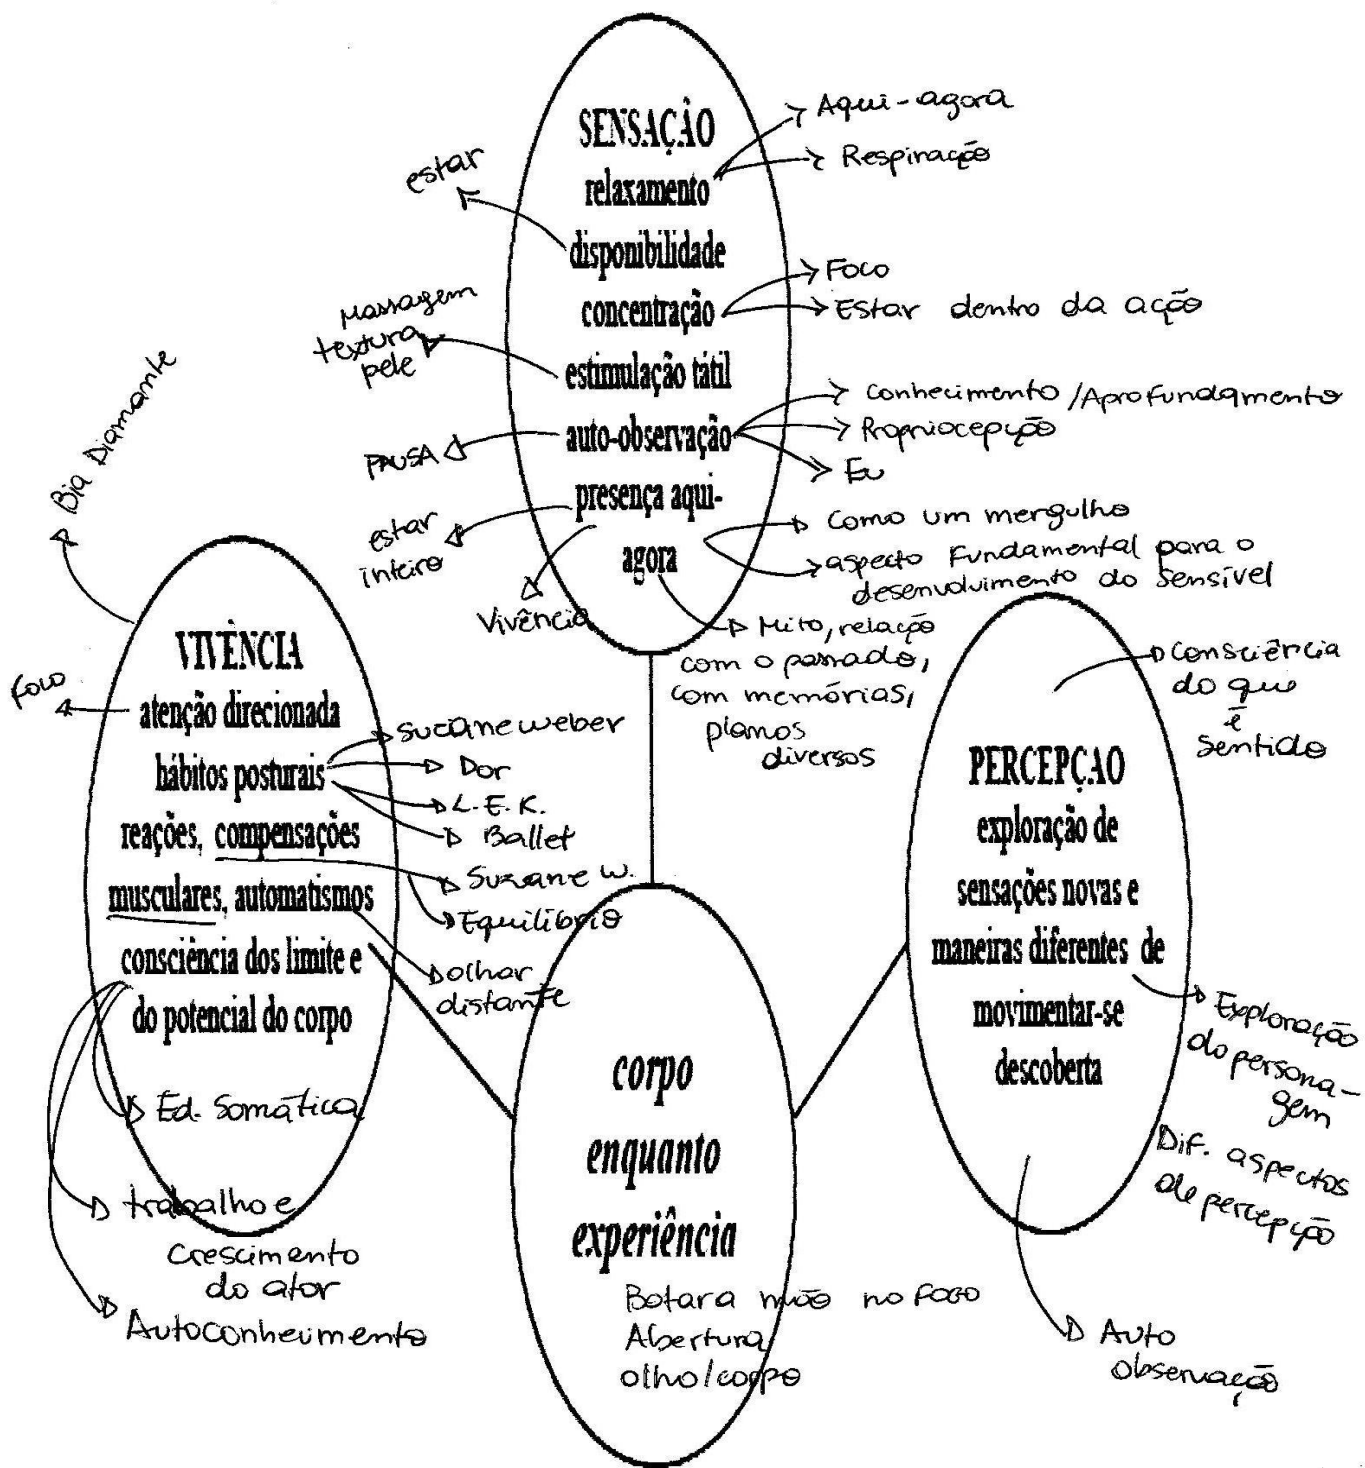 SENSAÇÃO
relaxamento
disponibilidade
concentração
estimulação tátil
auto-observação
presença aqui-
agora
Aqui-agora
Respiração
estar
Foco
Estar dentro da ação
Massagem
textura
pele
Conhecimento/Aprofundamento
Propriocepção
Eu
PAUSA
estar
inteiro
Vivência
Como um mergulho
aspecto Fundamental para o
desenvolvimento do sensível
Mito, relação
com o passado,
com memórias,
planos
diversos
Bia Diamante
VIVÊNCIA
atenção direcionada
hábitos posturais
reações, compensações
musculares, automatismos
consciência dos limite e
do potencial do corpo
Foco
Suzane weber
Dor
L.E.K.
Ballet
Suzane W.
Equilíbrio
olhar
distante
Ed. Somática
trabalho e
crescimento
do ator
Autoconhecimento
PERCEPÇAO
exploração de
sensações novas e
maneiras diferentes de
movimentar-se
descoberta
Consciência
do que
é
sentido
Exploração
do persona-
gem
Dif. aspectos
de percepção
Auto
observação
corpo
enquanto
experiência
Botar a mão no FOGO
Abertura
olho/corpo